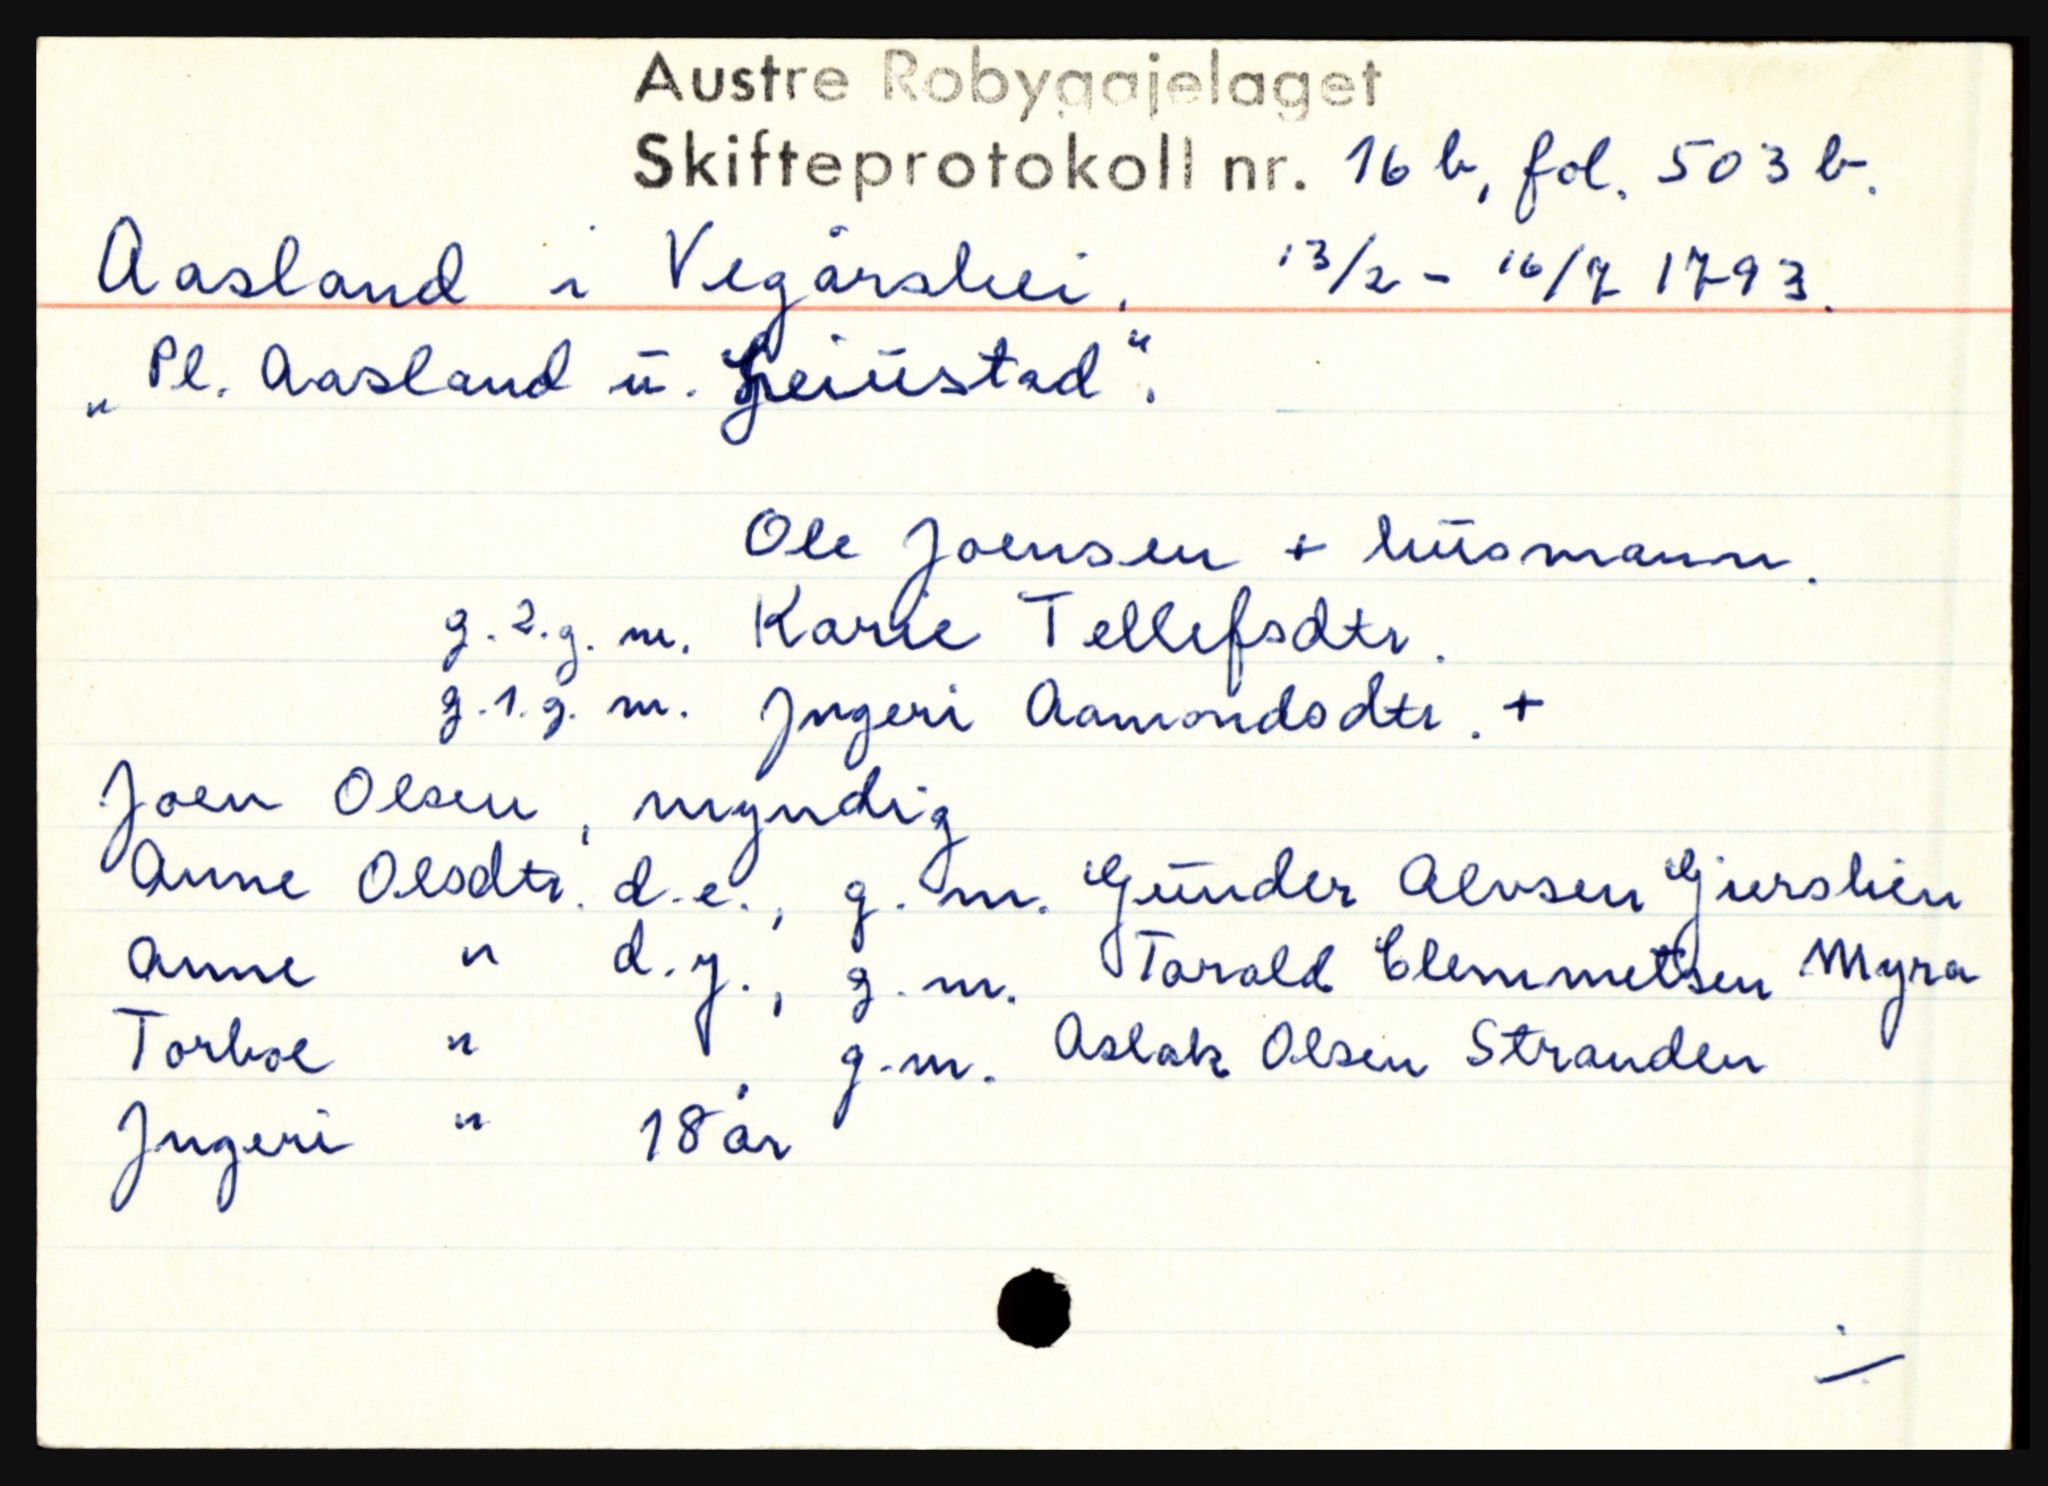 Austre Robyggjelaget
Skifteprotokoll nr. 16 b, fol. 503 b.
Aasland i Vegårshei. 13/2 - 16/7 1793.
„Pl. Aasland u. Leiustad“.
Ole Joensen + husmann.
g. 2. g. m. Karie Tellefsdtr.
g. 1. g. m. Ingeri Aamondsdtr. +
Joen Olsen, myndig
Anne Olsdtr. d.e., g. m. Gunder Alvsen Gierslien
Anne " d.y., g. m. Tarald Clemmetsen Myra
Torboe " , g.m. Aslak Olsen Stranden
Ingeri " 18 år